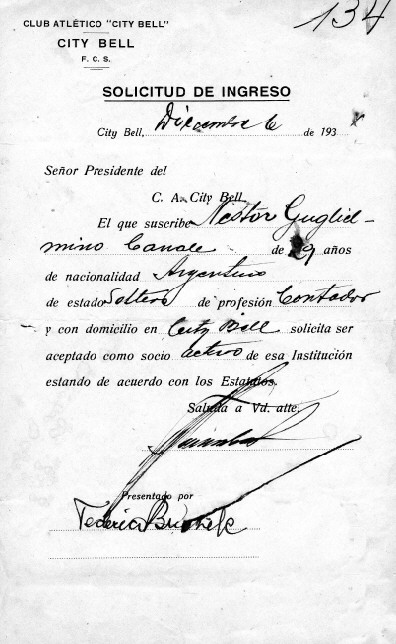 134
CLUB ATLÉTICO "CITY BELL"
CITY BELL
F. C. S.
SOLICITUD DE INGRESO
City Bell, Diciembre 6 de 193
Señor Presidente del
C. A. City Bell
El que suscribe Néstor Gugliel-
mino Canale de 29 años
de nacionalidad Argentino
de estado Soltero de profesión Contador
y con domicilio en City Bell solicita ser
aceptado como socio activo de esa Institución
estando de acuerdo con los Estatutos.
Saluda a Vd. atte.
Presentado por
Federico